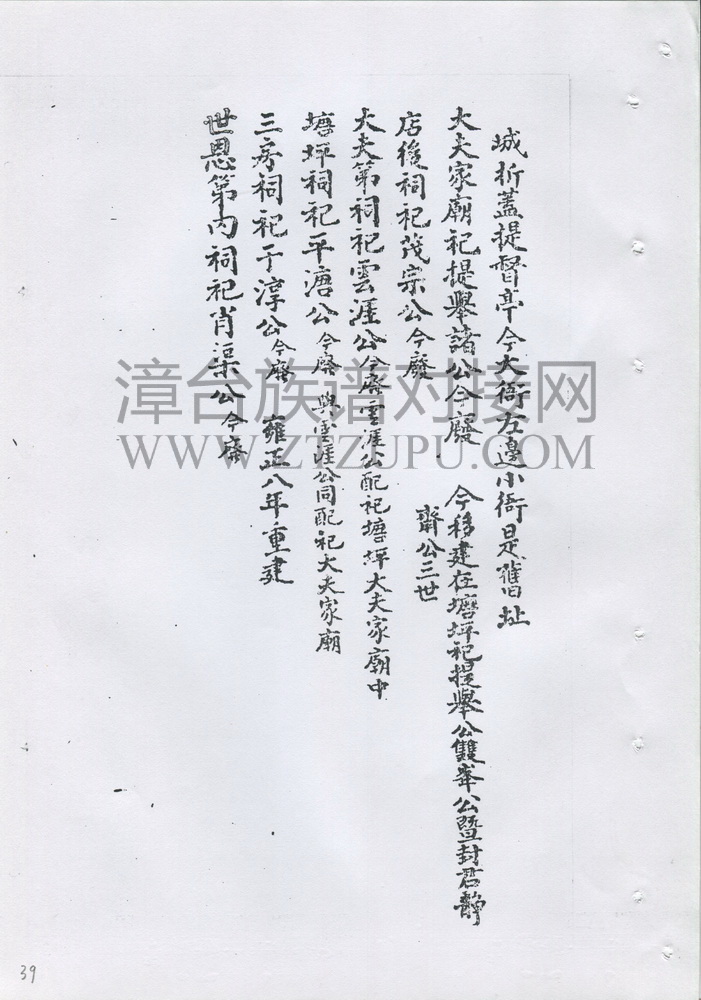 城折蓋提督亭今大衙左邊小衙是舊址
大夫家廟祀提舉諸公今廢 今移建在塘坪祀提舉公雙峯公暨封君靜
齋公三世
店後祠祀茂宗公今廢
大夫第祠祀雲涯公今廢雲涯公配祀塘坪大夫家廟中
塘坪祠祀平溏公今廢 與雲涯公同配祀大夫家廟
三房祠祀于淳公今廢 雍正八年重建
世恩第內祠祀肖渠公今廢
漳台族谱对接网
WWW.ZTZUPU.COM
39